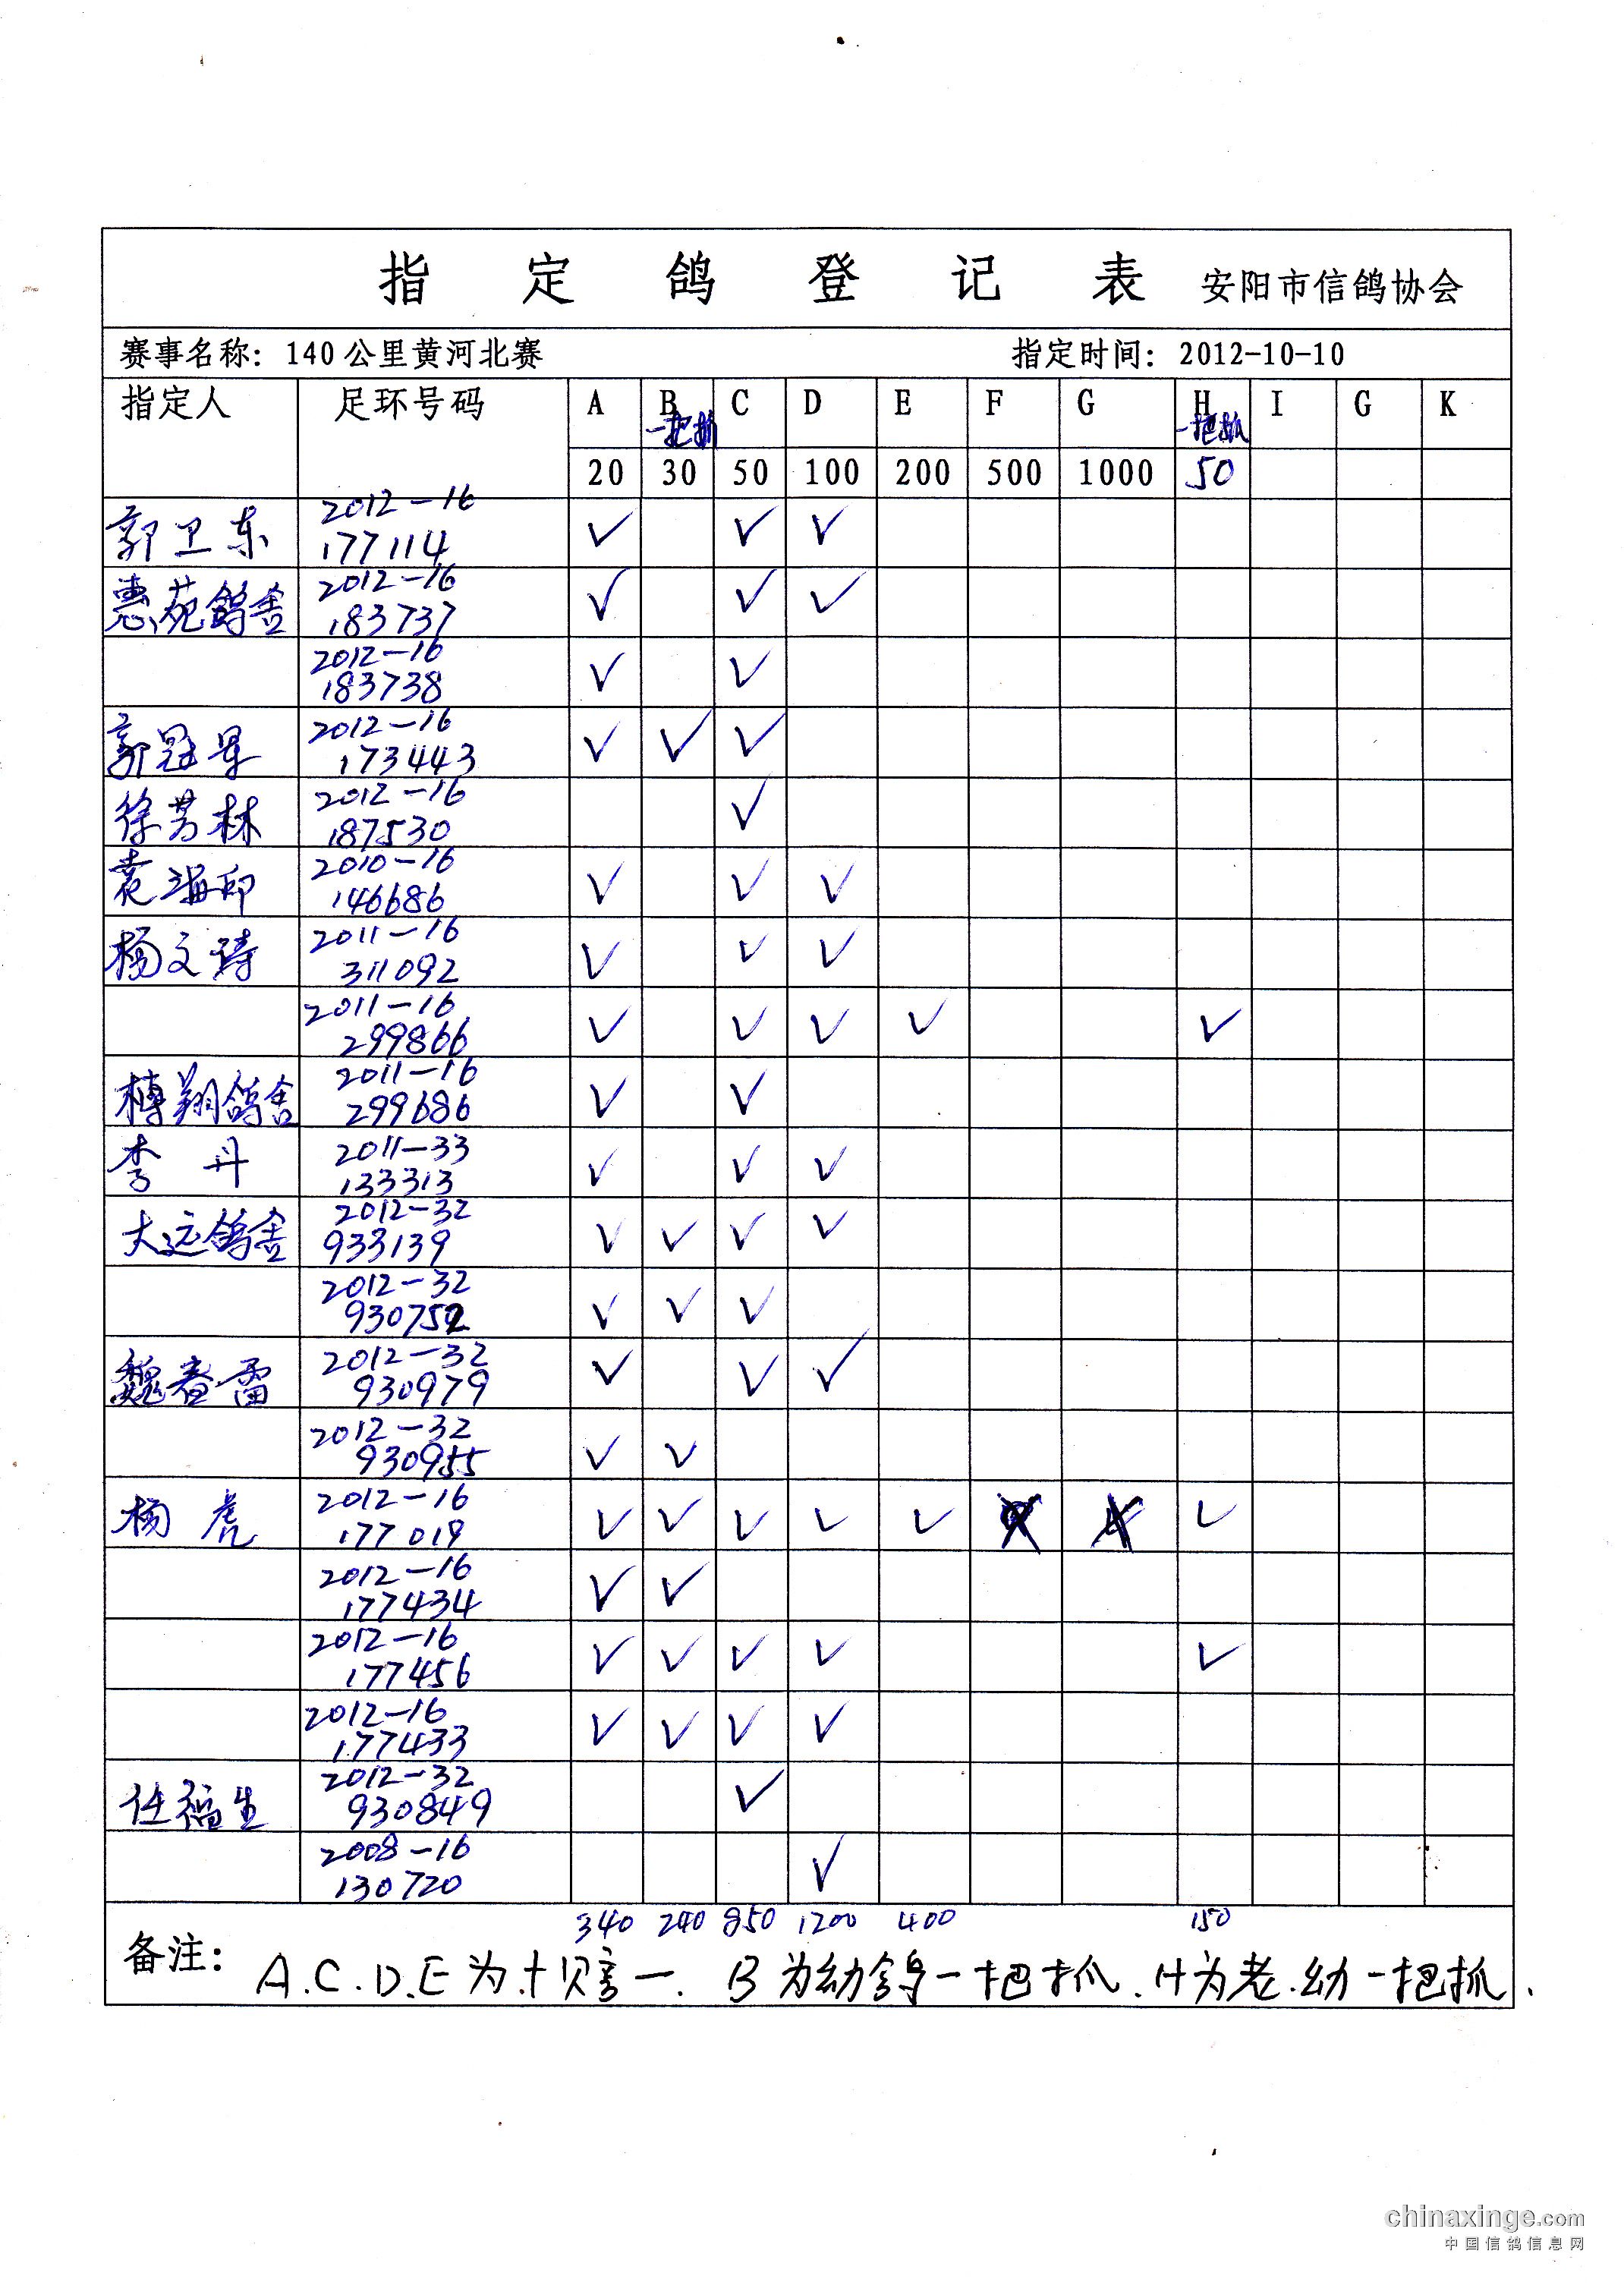 指定鸽登记表 安阳市信鸽协会
赛事名称：140公里黄河北赛 指定时间：2012-10-10
指定人 足环号码 A B C D E F G H I G K
一把抓 一把抓
20 30 50 100 200 500 1000 50
郭卫东 2012-16 177114 ✓ ✓ ✓
惠苑鸽舍 2012-16 183737 ✓ ✓ ✓
2012-16 183738 ✓ ✓
郭冠军 2012-16 173443 ✓ ✓ ✓
徐芳林 2012-16 187530 ✓
袁海印 2010-16 146686 ✓ ✓ ✓
杨文 2011-16 311092 ✓ ✓ ✓
2011-16 299866 ✓ ✓ ✓ ✓ ✓
翔鸽舍 2011-16 299686 ✓ ✓
李丹 2011-33 133313 ✓ ✓ ✓
大运鸽舍 2012-32 933139 ✓ ✓ ✓ ✓
2012-32 930752 ✓ ✓ ✓
魏春雷 2012-32 930979 ✓ ✓ ✓
2012-32 930955 ✓ ✓
杨虎 2012-16 177019 ✓ ✓ ✓ ✓ ✓ ✓
2012-16 177434 ✓ ✓
2012-16 177456 ✓ ✓ ✓ ✓ ✓
2012-16 177433 ✓ ✓ ✓ ✓
任福生 2012-32 930849 ✓
2008-16 130720 ✓
340 240 850 1200 400 150
备注：A.C.D.E为十贝言一.B为幼鸽一把抓.H为老.幼一把抓.
chinaxinge.com
中国信鸽信息网